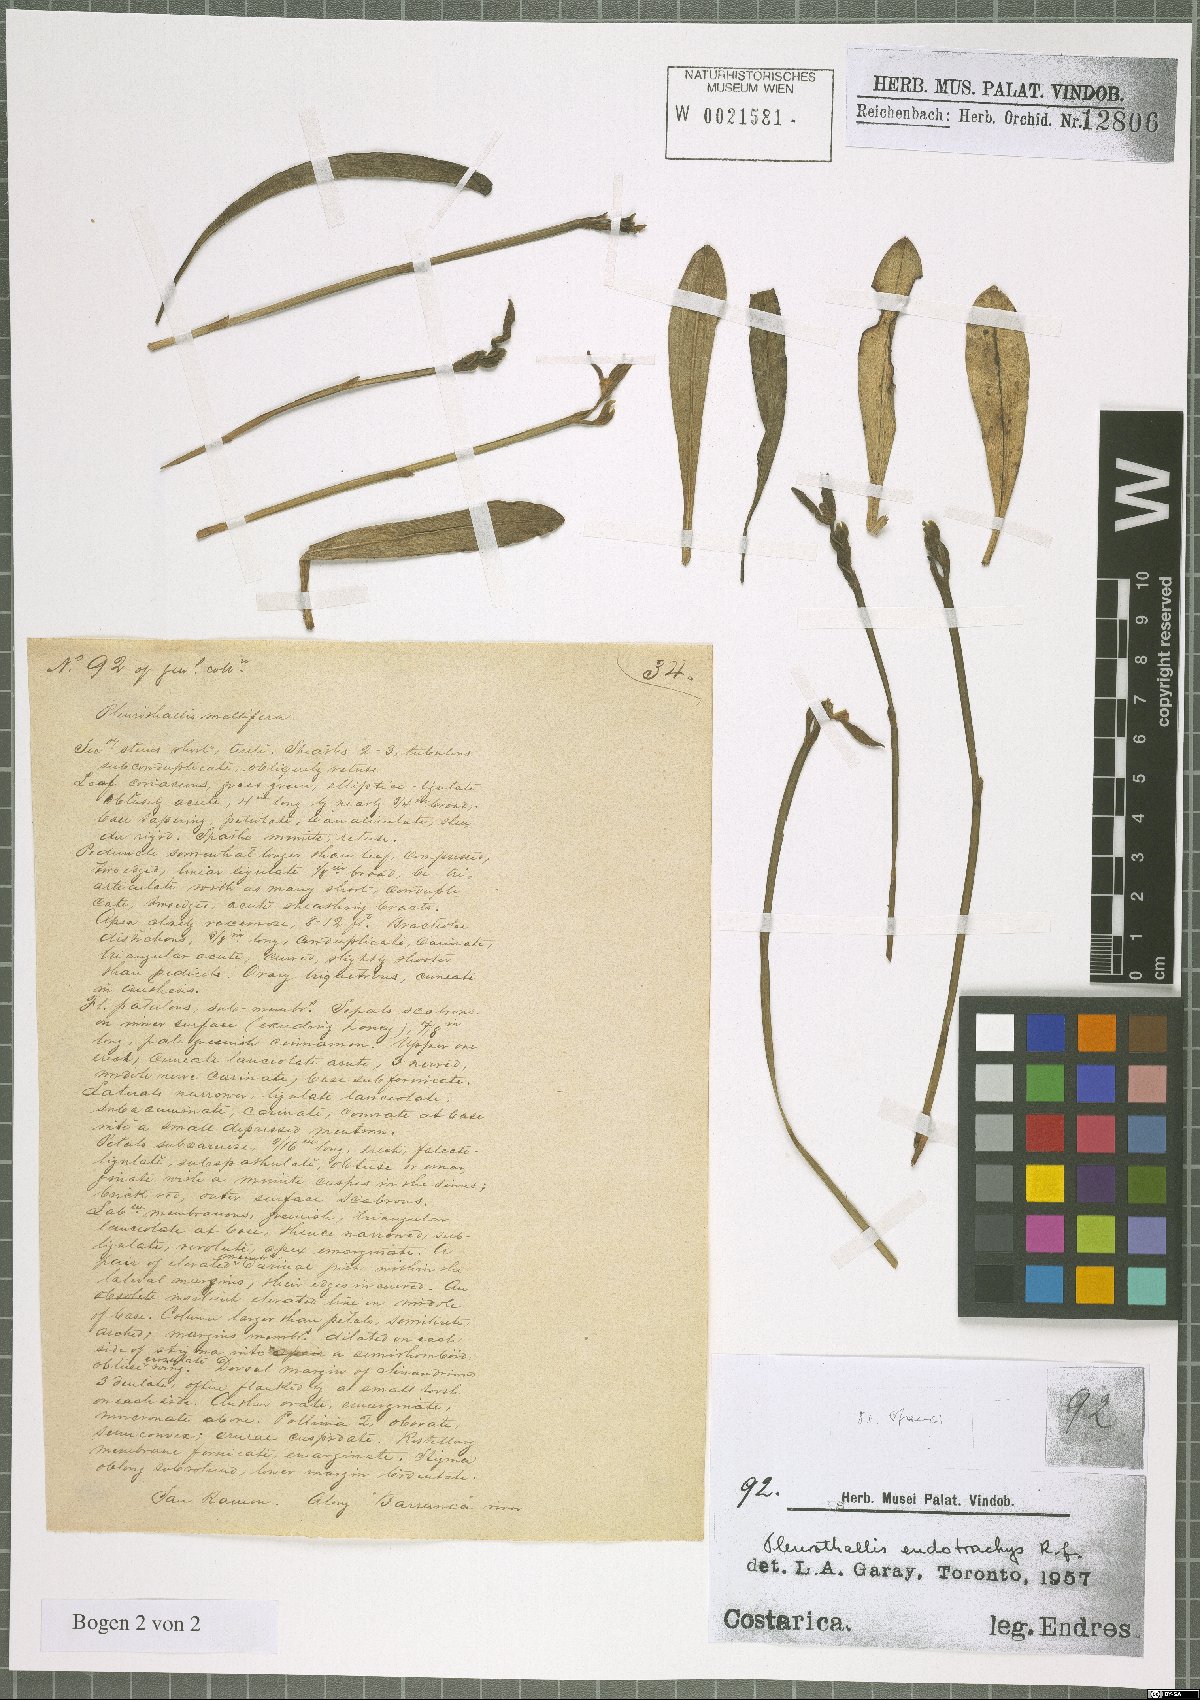 NATURHISTORISCHES
MUSEUM WIEN
W 0021581 -
HERB. MUS. PALAT. VINDOB.
Reichenbach: Herb. Orchid. Nr. 12806
No. 92 of
34.
stems short, Sheaths 2-3, tubulous
subconduplicate, obliquely retuse.
Leaf coriaceous, grass green, elliptico-ligulate
obtusely acute, long by nearly broad,
base tapering, petiolate, canaliculate,
rigid. Spathe minute, retuse.
Peduncle somewhat longer than leaf, compressed,
twoedged, linear ligulate broad,
articulate with as many short, condupli-
cate, twoedged, acute sheathing bracts.
Apex racemose, 8-12 fl. Bracteoles
distichous, long, conduplicate, carinate,
triangular acute, slightly shorter
than pedicels. Ovary triquetrous, cuneate
Fl. patulous, sub-membr. Sepals scabrous
on inner surface (exuding honey), 7/8
long, pale greenish cinnamon. Upper one
cuneate lanceolate acute, 3 nerved,
middle nerve carinate, base subfornicate.
Laterals narrower, ligulate lanceolate,
subacuminate, carinate, connate at base
into a small depressed mentum.
Petals long, falcate-
ligulate, subspathulate, obtuse or emar-
ginate with a minute cuspis in the sinus;
brick red, outer surface scabrous.
membranous, greenish, triangular
lanceolate at base, thence narrowed, sub-
ligulate, revolute, apex emarginate. A
pair of elevated carinae within the
lateral margins, their edges incurved. An
elevated line in middle
of base. Column larger than petals, semiterete
margins membr. dilated on each
side of stigma into a semirhomboid
obtuse wing. Dorsal margin of
3 dentate, often flanked by a small tooth
on each side. Anther ovate, emarginate,
mucronate above. Pollinia 2, obovate,
semiconvex; cuspidate. Rostellary
membrane fornicate, emarginate. Stigma
oblong subrotund, lower margin
San Ramon. Along Barranca river
Bogen 2 von 2
W
0 1 2 3 4 5 6 7 8 9 10
cm
copyright reserved
92
92.
Herb. Musei Palat. Vindob.
Pleurothallis endotrachys R.f.
det. L.A. Garay, Toronto, 1957
Costarica. leg. Endres